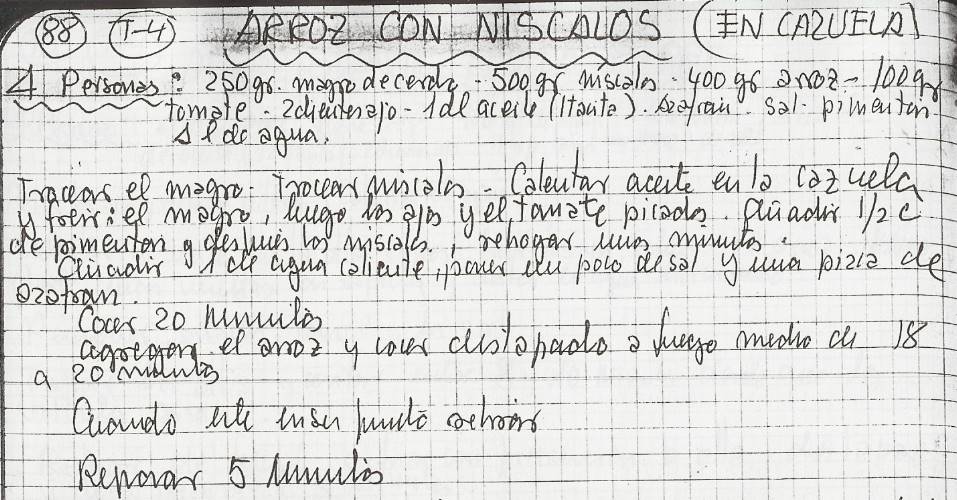 88 T-4 ARROZ CON NISCALOS (EN CAZUELA)
4 Personas: 250 gr. magro de cerdo - 500 gr niscalos - 400 gr arroz - 100 gr
tomate - 2 dientes ajo - 1 dl aceite (1 tacita). Azafran - sal - pimenton
1 l de agua.
Trocear el magro - Trocear niscalos - Calentar aceite en la cazuela
y freir: el magro, luego los ajos y el tomate picados. Añadir 1/2 c
de pimenton y después los niscalos, rehogar unos minutos.
Añadir 1 l de agua caliente, poner un poco de sal y una pizca de
azafran.
Cocer 20 minutos
agregar el arroz y cocer destapado a fuego medio de 18
a 20 minutos
Cuando esté en su punto retirar
Reposar 5 minutos